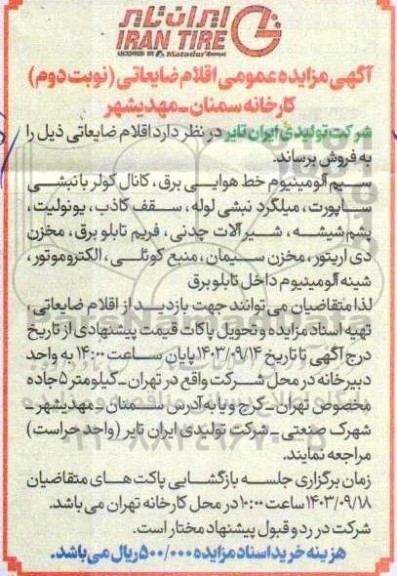 ایران تایر
IRAN TIRE
LICENSED BY Matador
آگهی مزایده عمومی اقلام ضایعاتی (نوبت دوم)
کارخانه سمنان ـ مهدیشهر
شرکت تولیدی ایران تایر در نظر دارد اقلام ضایعاتی ذیل را
به فروش برساند.
سیم آلومینیوم خط هوایی برق، کانال کولر با نبشی
ساپورت، میلگرد نبشی لوله، سقف کاذب، یونولیت،
پشم شیشه، شیرآلات چدنی، فریم تابلو برق، مخزن
دی اریتور، مخزن سیمان، منبع کوئلی، الکتروموتور،
شینه آلومینیوم داخل تابلو برق
لذا متقاضیان می توانند جهت بازدید از اقلام ضایعاتی،
تهیه اسناد مزایده و تحویل پاکات قیمت پیشنهادی از تاریخ
درج آگهی تا تاریخ ۱۴۰۳/۰۹/۱۴ پایان ساعت ۱۴:۰۰ به واحد
دبیرخانه در محل شرکت واقع در تهران ـ کیلومتر ۵ جاده
مخصوص تهران ـ کرج و یا به آدرس سمنان ـ مهدیشهر ـ
شهرک صنعتی ـ شرکت تولیدی ایران تایر (واحد حراست)
مراجعه نمایند.
زمان برگزاری جلسه بازگشایی پاکت های متقاضیان
۱۴۰۳/۰۹/۱۸ ساعت ۱۰:۰۰ در محل کارخانه تهران می باشد.
شرکت در رد و قبول پیشنهاد مختار است.
هزینه خرید اسناد مزایده ۵۰۰/۰۰۰ ریال می باشد.